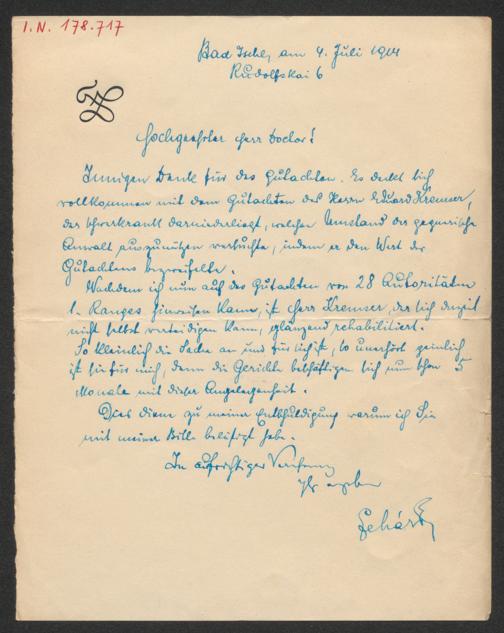 I.N. 178.717
Bad Ischl, am 4. Juli 1914
Rudolfskai 6
Hochgeehrter Herr Doctor!
Innigen Dank für das Gutachten. Es deckt sich
vollkommen mit dem Gutachten des Herrn Eduard Kremser,
der schwerkrank darniederliegt, welchen Umstand der gegnerische
Anwalt auszunützen versuchte, indem er den Wert des
Gutachtens bezweifelte.
Nachdem ich nun auf das Gutachten von 28 Autoritäten
1. Ranges hinweisen kann, ist Herr Kremser, der sich derzeit
nicht selbst verteidigen kann, glänzend rehabilitiert.
So kleinlich die Sache an und für sich ist, so unerhört peinlich
ist sie für mich, denn die Gerichte beschäftigen sich nun schon 5
Monate mit dieser Angelegenheit.
Dies diene zu meiner Entschuldigung warum ich Sie
mit meiner Bitte belästigt habe.
In aufrichtiger Verehrung
Ihr ergebener
Lehár